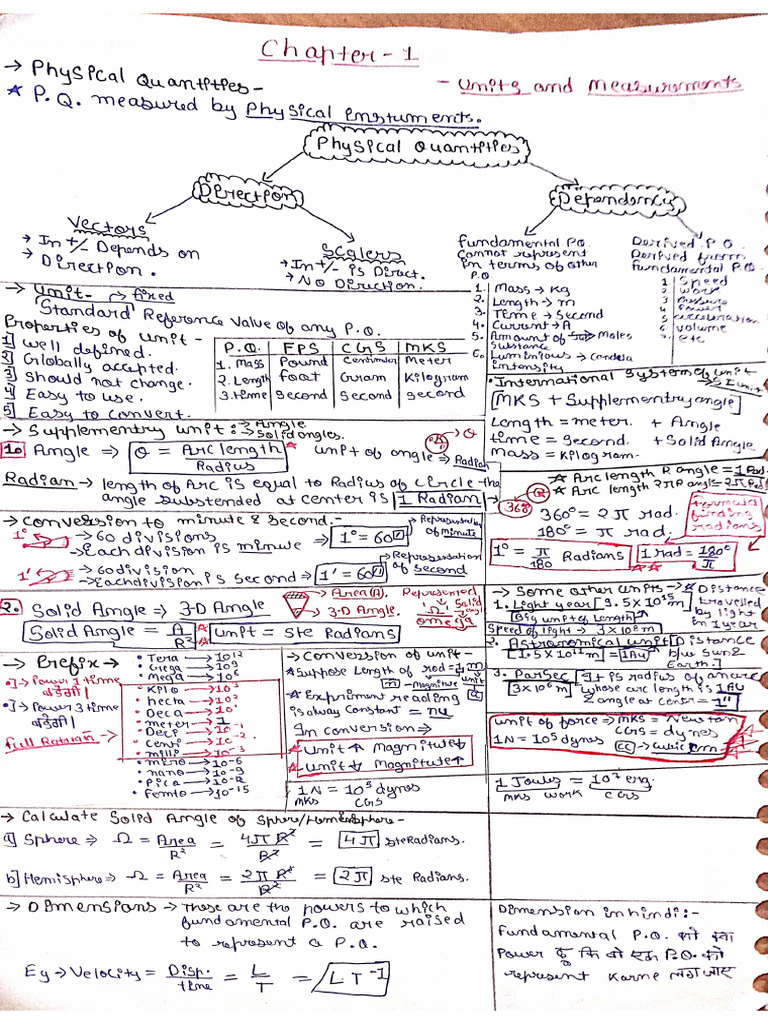 Chapter-1
→ Physical Quantities-
- Units and Measurements
* P.Q. measured by Physical instuments.
Physical Quantities
Direction
Dependency
Vectors
→ In +/- Depends on
→ Direction.
Scalers
→ In +/- is Direct.
→ No Direction.
Fundamental P.Q.
Cannot represent
in terms of other
P.Q.
1. Mass → Kg
2. Length → m
3. Time → Second
4. Current → A
5. Amount of → Moles
Substance
6. Luminious → Candela
intensity
Derived P.Q.
Derived from
fundamental P.Q.
1 Speed
2 Work
3 Pressure
4 Power
5 acceleration
6 volume
7 etc
→ Unit- → fixed
Standard Reference Value of any P.Q.
Properties of Unit-
1] well defined.
2] Globally accepted.
3] Should not change.
4] Easy to use.
5] Easy to convert.
P.Q. FPS CGS MKS
1. Mass Pound Centimeter Meter
2. Length foot Gram Kilogram
3. time Second Second Second
• International System of Unit-
→ SI Unit
[MKS + Supplementry angle]
Length = meter. + Angle
time = Second. + Solid Angle
mass = Kilogram.
→ Supplementry unit: → Angle
→ Solid angles.
1. Angle ⇒ θ = Arc length / Radius *
unit of angle ⇒ Radian
Radian → length of Arc is equal to Radius of circle the
angle substended at center is 1 Radian
* Arc length R angle = 1 Rad.
* Arc length 2πR angle = 2π Rad
360°
360° = 2π rad.
180° = π rad.
1° = π/180 Radians
1 rad = 180°/π
→ Conversion to minute & Second.-
1° → 60 divisions
→ Each division is minute ⇒ 1° = 60'
→ Representation of minute
1' → 60 division
→ Each division is Second ⇒ 1' = 60"
→ Representation of Second
2. Solid Angle ⇒ 3-D Angle
→ Area(A). Represented
→ 3-D Angle. "Ω" Solid
omega
Solid Angle = A/R² *
* unit = Ste Radians
→ Some other units -
1. Light year [9.5 × 10¹⁵ m] → * Distance travelled by light in 1 year
Big unit of length
Speed of light → 3 × 10⁸ m
2. Astranomical Unit → Distance
[1.5 × 10¹¹ m] = 1AU b/w Sun & Earth.
3. Par Sec [It is radius of an arc
[3 × 10¹⁶ m] whose arc length is 1 AU
& angle at Centr = 1"
→ Prefix →
•] → Power 1 time बढ़ेगी।
•] → Power 3 time बढ़ेगी।
• Tera → 10¹²
• Giega → 10⁹
• Mega → 10⁶
• Kilo → 10³
• hecta → 10²
• Deca → 10¹
• meter → 1
• Deci → 10⁻¹
• Centi → 10⁻²
• milli → 10⁻³
• micro → 10⁻⁶
• nano → 10⁻⁹
• Pica → 10⁻¹²
• Femto → 10⁻¹⁵
→ Conversion of unit-
* Suppose Length of rod = 4 m
→ unit
→ magnitude
* Expriment reading
is alway Constant = nu
In conversion ⇒
* unit ↑ Magnitude ↓
* Unit ↓ Magnitude ↑
1 N = 10⁵ dynes
MKS CGS
unit of force → MKS = Newton
CGS = dynes
1N = 10⁵ dynes
(CC) → cubic cm
1 Joules = 10⁷ erg.
MKS work CGS
→ Calculate Solid Angle of Sphere/Hemisphere-
a] Sphere ⇒ Ω = Area/R² = 4πR²/R² = 4π ste Radians.
b] Hemisphere ⇒ Ω = Area/R² = 2πR²/R² = 2π Ste Radians.
→ Dimensions → These are the powers to which
fundamental P.Q. are raised
to represent a P.Q.
Eg → Velocity = Disp./time = L/T = LT⁻¹
Dimension in hindi:-
Fundamental P.Q. को
Power कि वो एक P.Q. को
represent Karne लग जाए